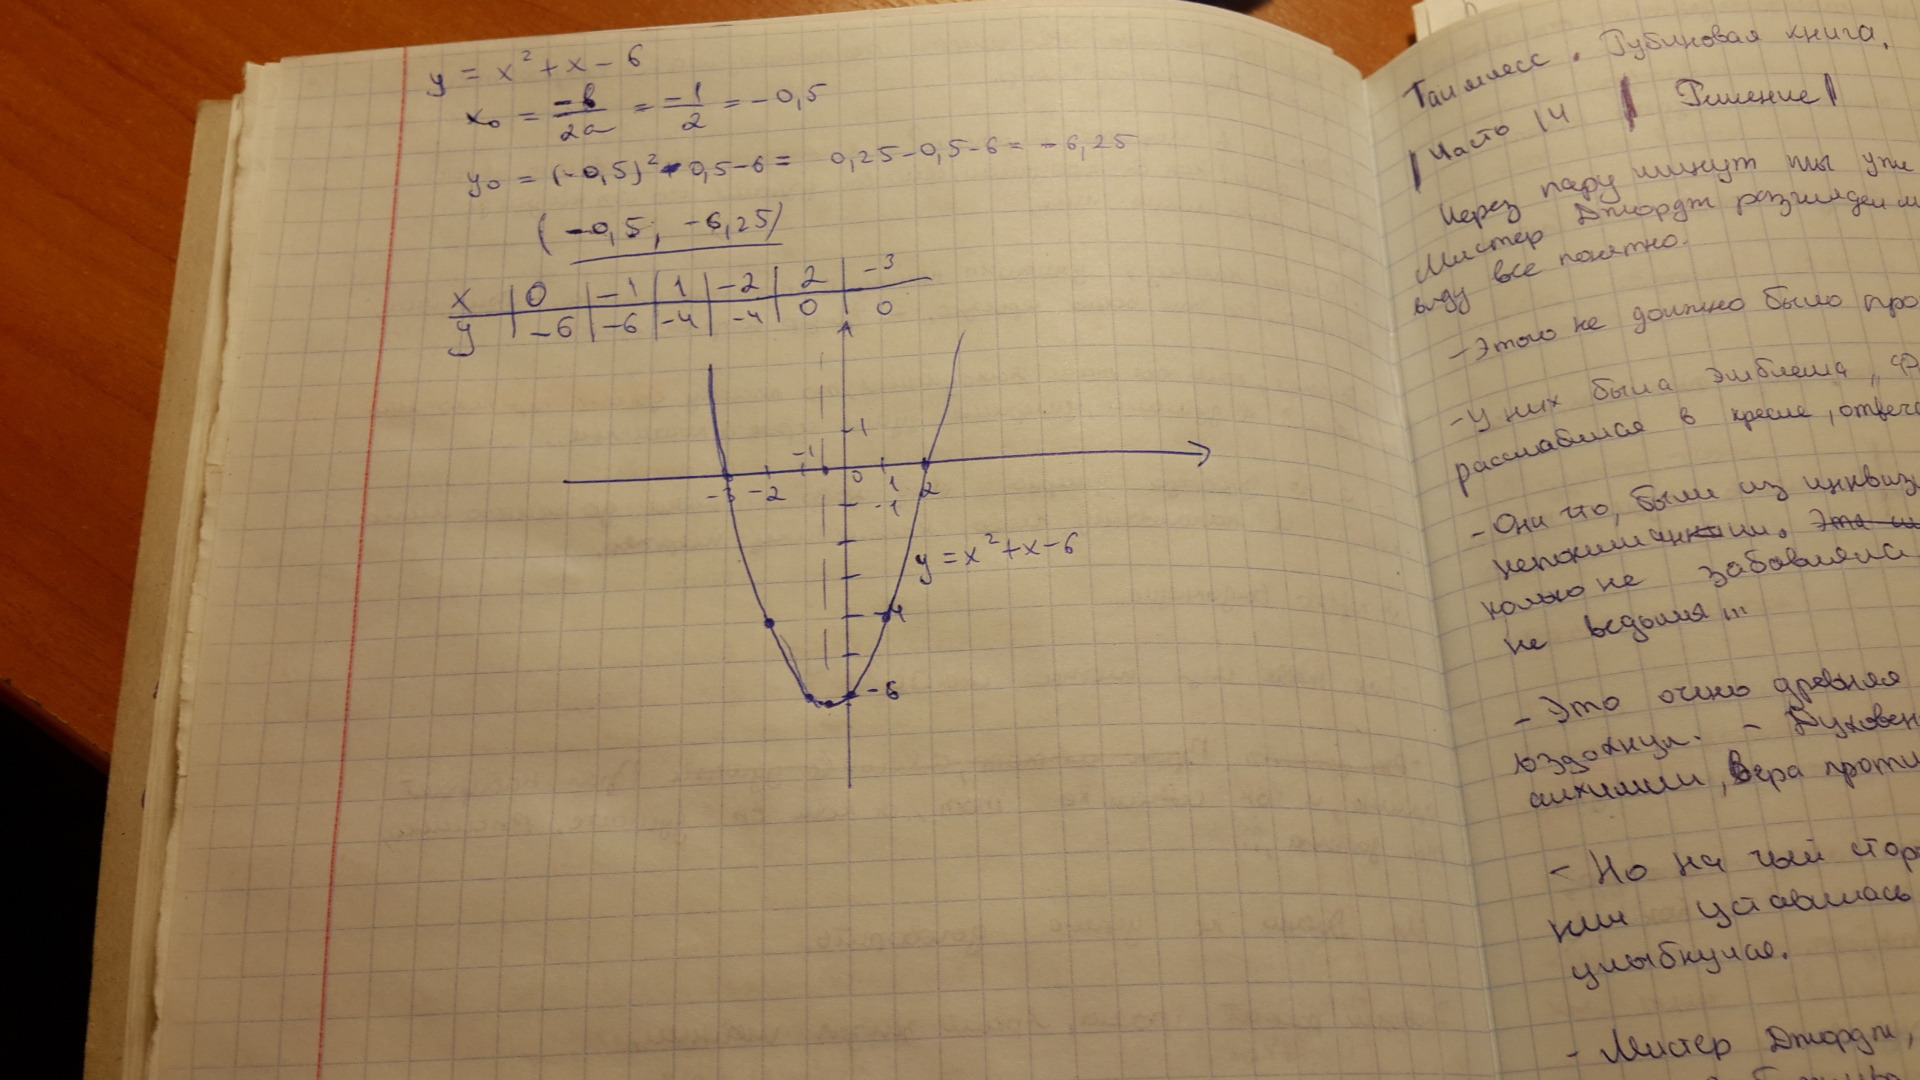 y = x² + x - 6
x₀ = -b/2a = -1/2 = -0,5
y₀ = (-0,5)² - 0,5 - 6 = 0,25 - 0,5 - 6 = -6,25
(-0,5; -6,25)
x | 0 | -1 | 1 | -2 | 2 | -3
y | -6 | -6 | -4 | -4 | 0 | 0
1
-3 -2 -1 0 1 2
-1
y = x² + x - 6
-4
-6
Таймлесс. Рубиновая книга.
Часть 14 | Решение |
Через пару минут мы уже
Мистер Джордж разглядел
виду все понятно.
- Этого не должно было про
- У них была эмблема,
расслабился в кресле, отвеч
- Они что, были из инквиз
не забавляла
не ведьмя...
- Это очень древняя
вздохнул. - Духовен
алхимии, вера проти
- Но на чьей стор
уставилась
улыбнулся.
- Мистер Джордж,